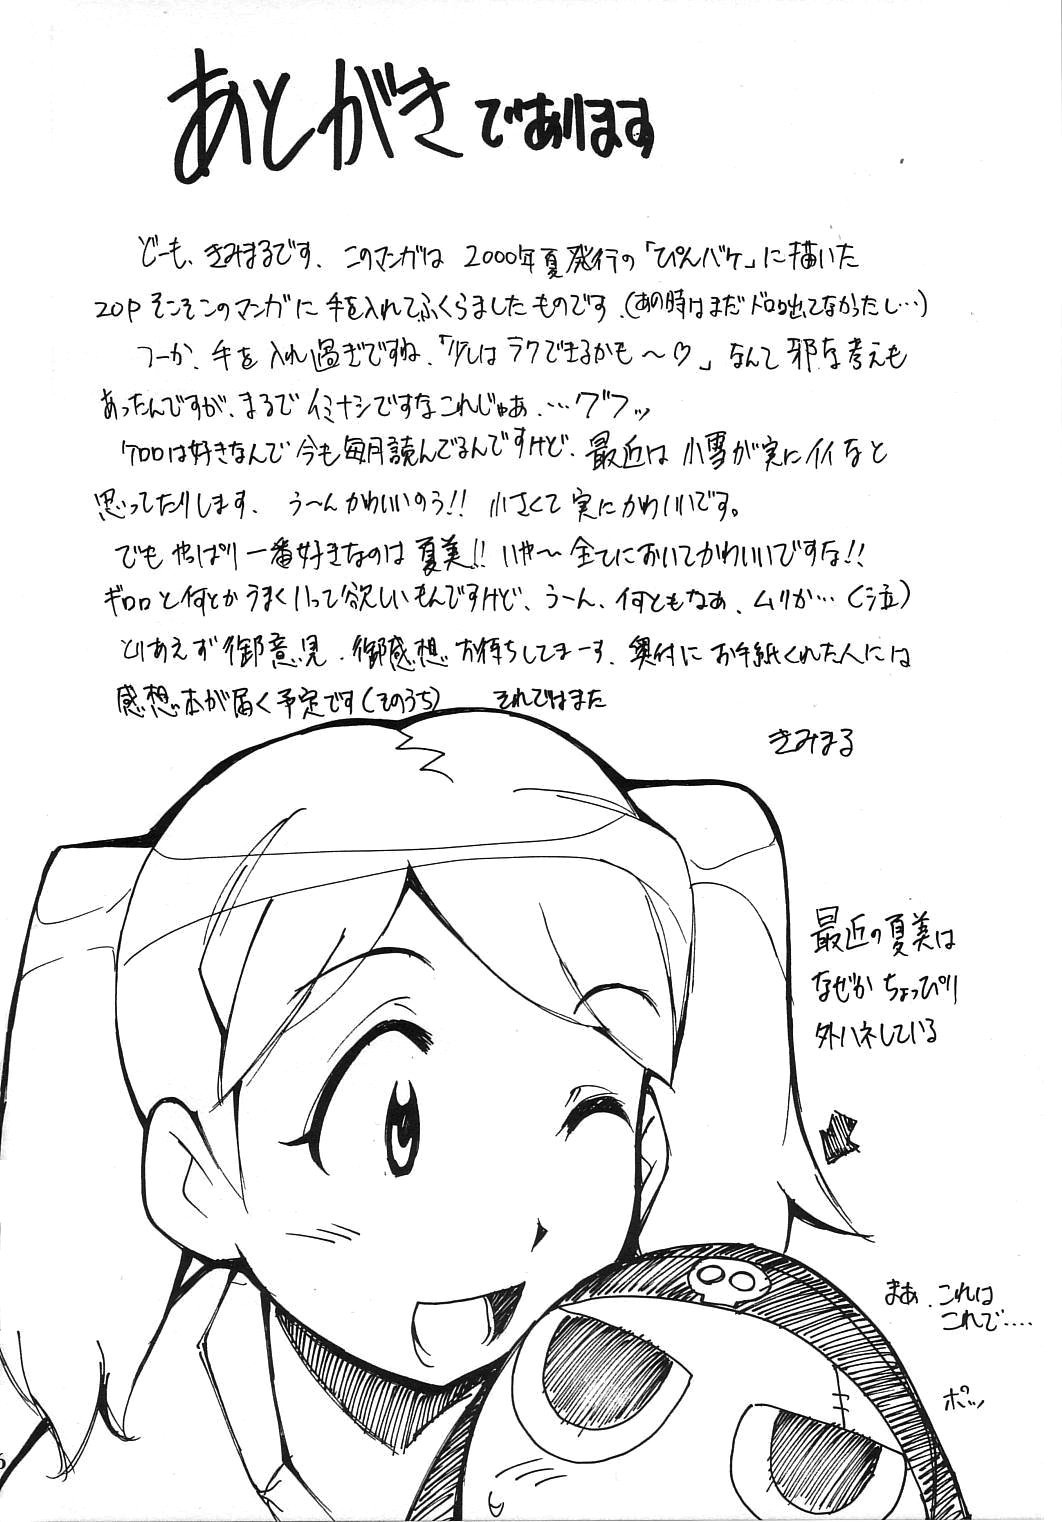 あとがきであります
どーも、きみまるです、このマンガは2000年夏発行の「ぴんバケ」に描いた
20Pそこそこのマンガに手を入れてふくらましたものです、(あの時はまだドロロ出てなかったし…)
つーか、手を入れ過ぎですね、「少しはラクできるかも〜♡」なんて邪な考えも
あったんですが、まるでイミナシですなこれじゃあ、…グフッ
ケロロは好きなんで今も毎月読んでるんですけど、最近は小雪が実にイイなと
思ってたりします、う〜んかわいいのう!!小さくて実にかわいいです。
でもやっぱり一番好きなのは夏美!!いや〜全てにおいてかわいいですな!!
ギロロと何とかうまくいって欲しいもんですけど、う〜ん、何ともなあ、ムリか…(泣)
とりあえず御意見、御感想お待ちしてまーす、奥付にお手紙くれた人には
感想本が届く予定です(そのうち) それではまた
きみまる
最近の夏美は
なぜかちょっぴり
外ハネしている
まぁ、これは
これで‥‥
ポッ